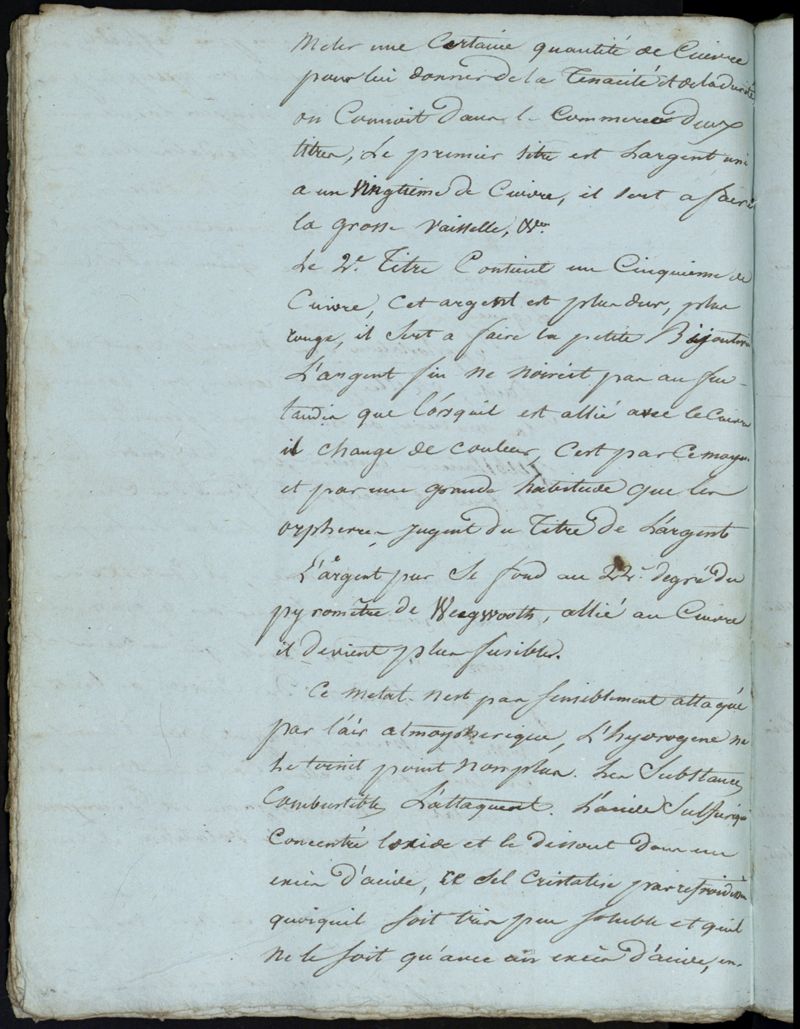 Meler une Certaine quantité de Cuivre
pour lui donner de la Tenacité et de la dureté
on Connoit dans le Commerce deux
titres, Le premier titre est Largent uni
a un vingtieme de Cuivre, il sert a faire
la grosse vaisselle, &ca.
Le 2e. Titre Contient un Cinquieme de
Cuivre, Cet argent est plus dur, plus
rouge, il sert a faire la petite Bijouterie
L'argent fin ne noircit pas au feu
tandis que lorsquil est allié avec le Cuivre
il change de couleur, C'est par Ce moyen
et par une grande habitude que les
orphevres jugent du Titre de L'argent
L'argent pur se fond au 22e. degré du
pyrometre de Wegwooth, allié au Cuivre
il devient plus fusible.
Ce metal n'est pas sensiblement attaqué
par l'air atmospherique, L'hydrogene ne
Le ternit point non plus. Les Substances
Combustibles L'attaquent. L'acide Sulfurique
Concentré loxide et le dissout dans un
excès d'acide, ce Sel Cristalise par refroidissmt
quoiquil soit très peu soluble et quil
ne le soit qu'avec un excès d'acide, en-